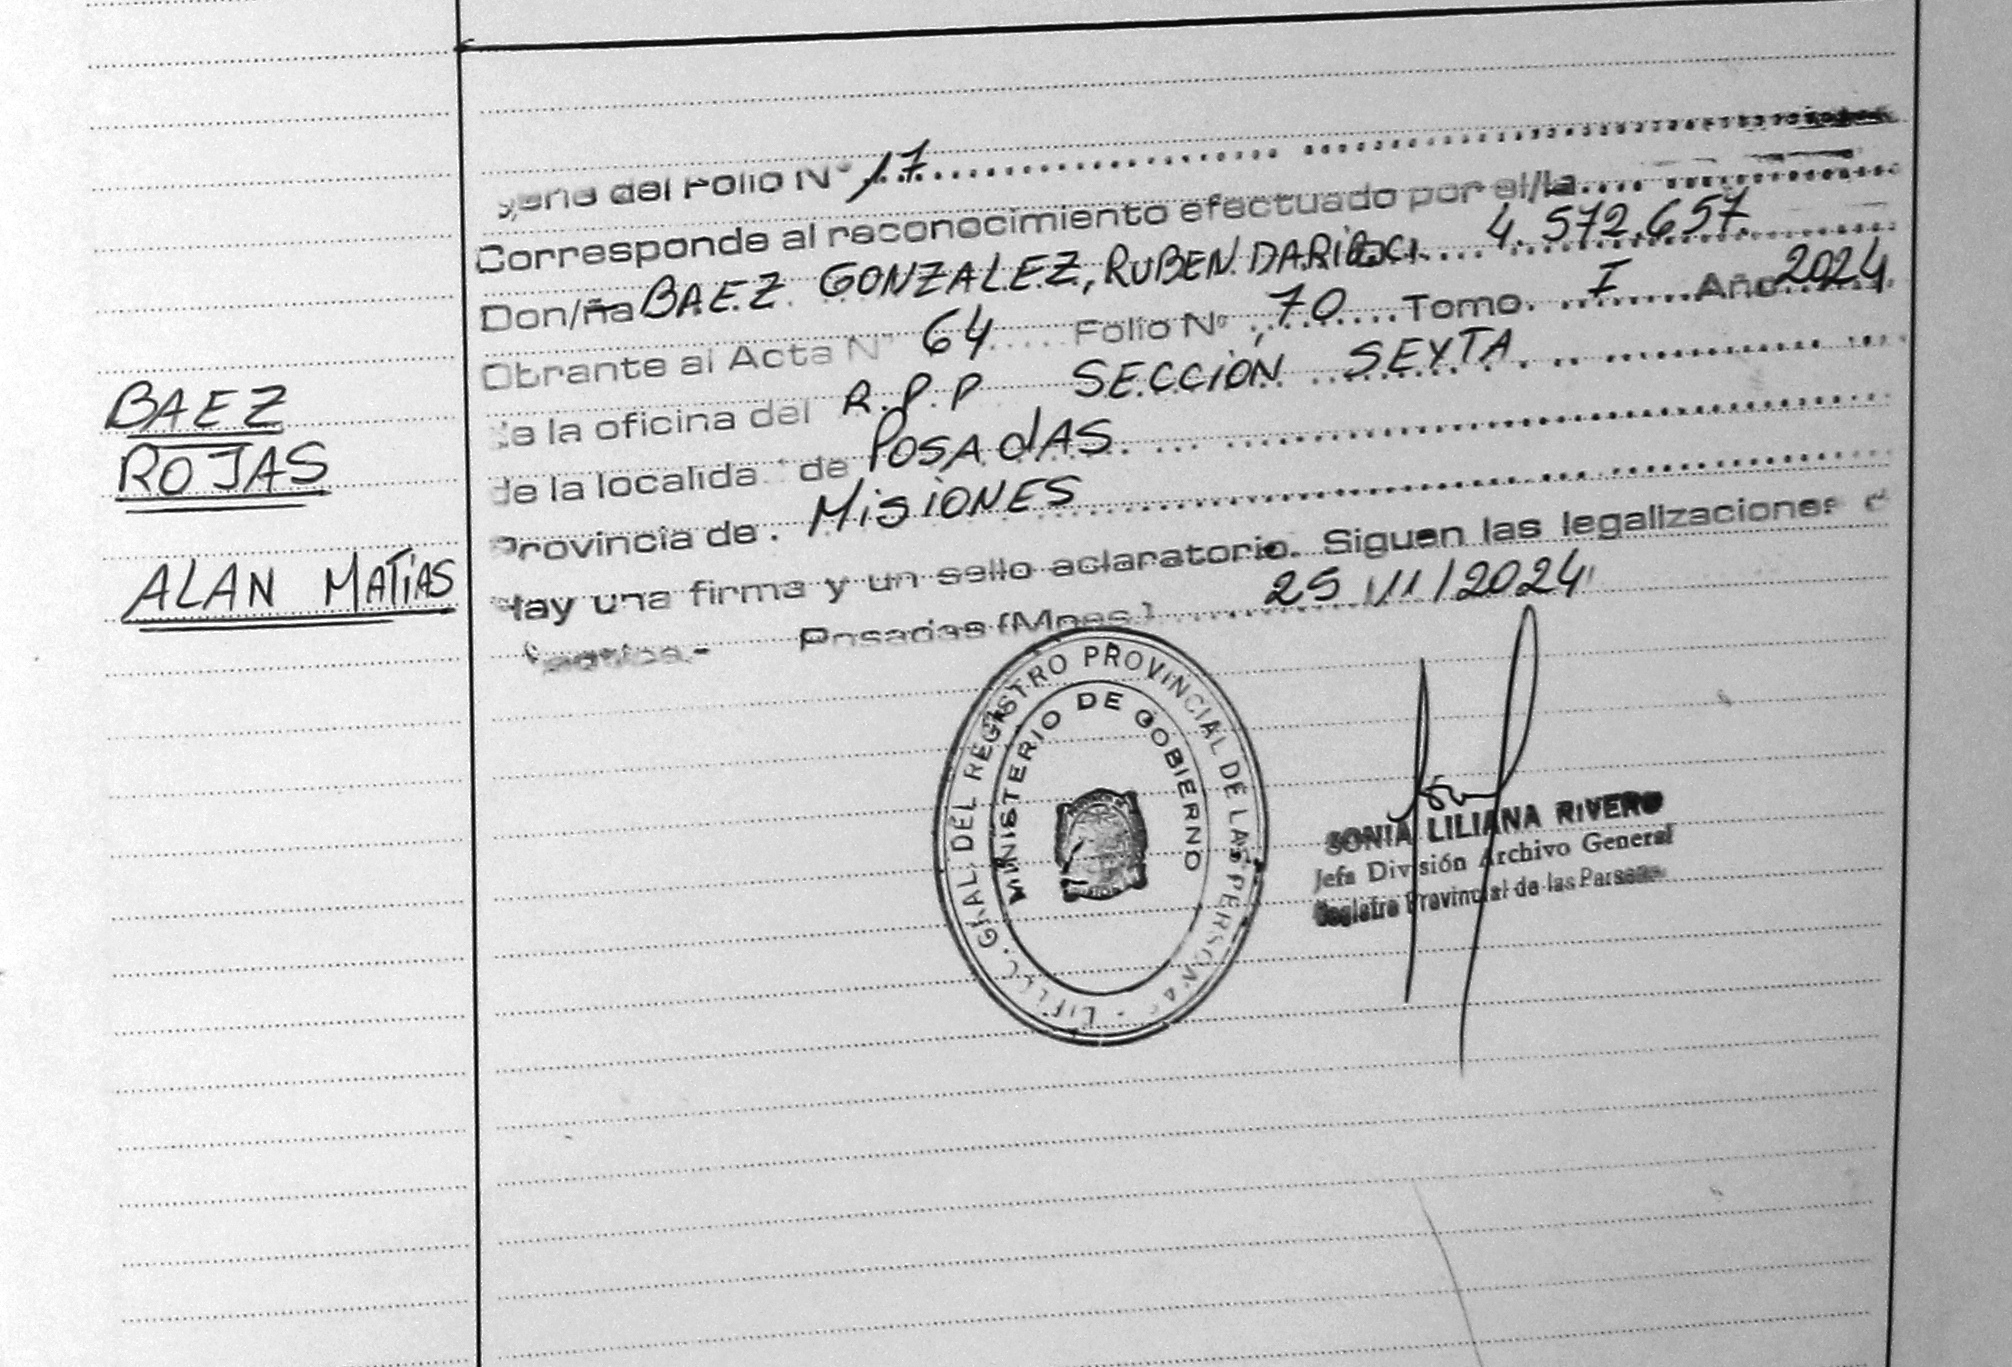 BAEZ
ROJAS
ALAN MATIAS
Viene del Folio Nº 17
Corresponde al reconocimiento efectuado por el/la
Don/ña BAEZ GONZALEZ, RUBEN DARIO CI 4.572.657.
Obrante al Acta Nº 64 Folio Nº 70 Tomo I Año 2024
de la oficina del R.P.P SECCIÓN SEXTA
de la localida de POSADAS
Provincia de MISIONES
Hay una firma y un sello aclaratorio. Siguen las legalizaciones
Posadas (Mnes.) 25/11/2024
GRAL. DEL REGISTRO PROVINCIAL DE LAS PERSONAS
MINISTERIO DE GOBIERNO
SONIA LILIANA RIVERO
Jefa División Archivo General
Registro Provincial de las Personas